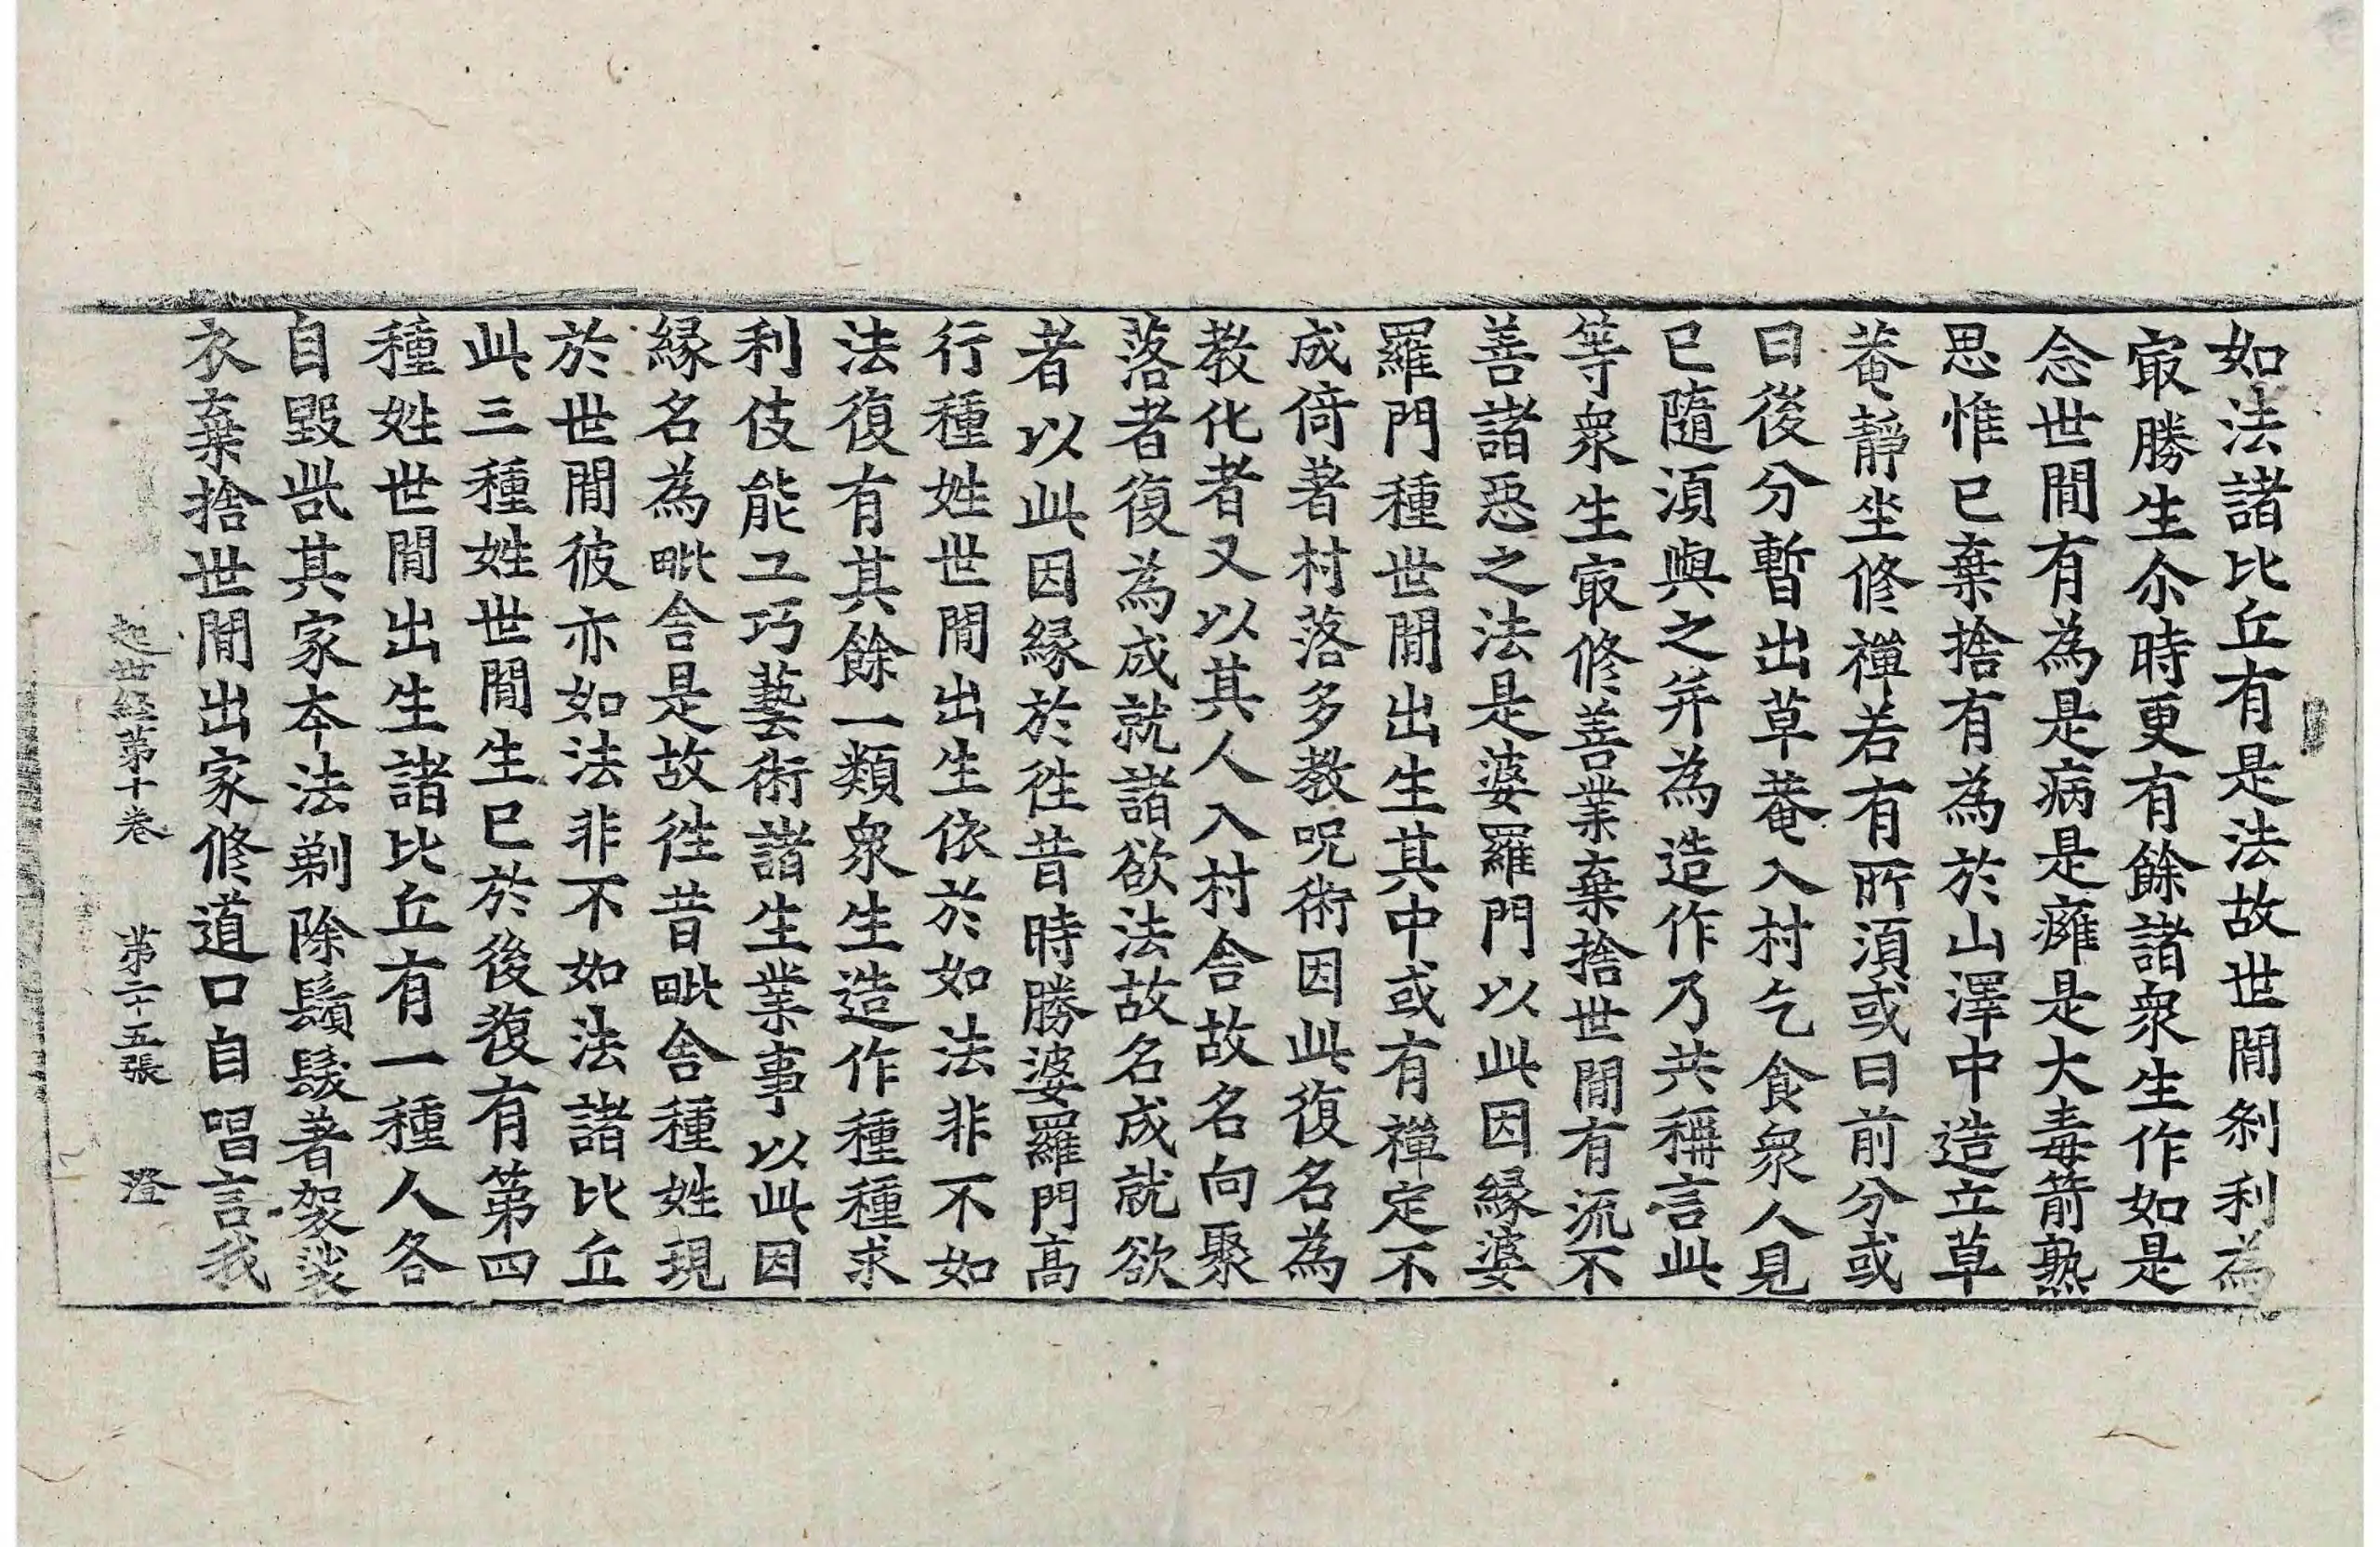 如法諸比丘有是法故世間刹利為
㝡勝生尒時更有餘諸衆生作如是
念世間有為是病是癰是大毒箭熟
思惟已棄捨有為於山澤中造立草
菴靜坐修禪若有所湏或日前分或
日後分暫出草菴入村乞食衆人見
已隨湏與之并為造作乃共稱言此
等衆生㝡修善業棄捨世間有流不
善諸惡之法是婆羅門以此因緣婆
羅門種世間出生其中或有禪定不
成倚著村落多教呪術因此復名為
教化者又以其人入村舍故名向聚
落者復為成就諸欲法故名成就欲
者以此因緣於徃昔時勝婆羅門高
行種姓世間出生依於如法非不如
法復有其餘一類衆生造作種種求
利伎能工巧藝術諸生業事以此因
緣名為毗舍是故徃昔毗舍種姓現
於世間彼亦如法非不如法諸比丘
此三種姓世間生已於後復有第四
種姓世間出生諸比丘有一種人各
自毀呰其家本法剃除鬚髮著袈裟
衣棄捨世間出家修道口自唱言我
起世經第十卷 第二十五張 澄